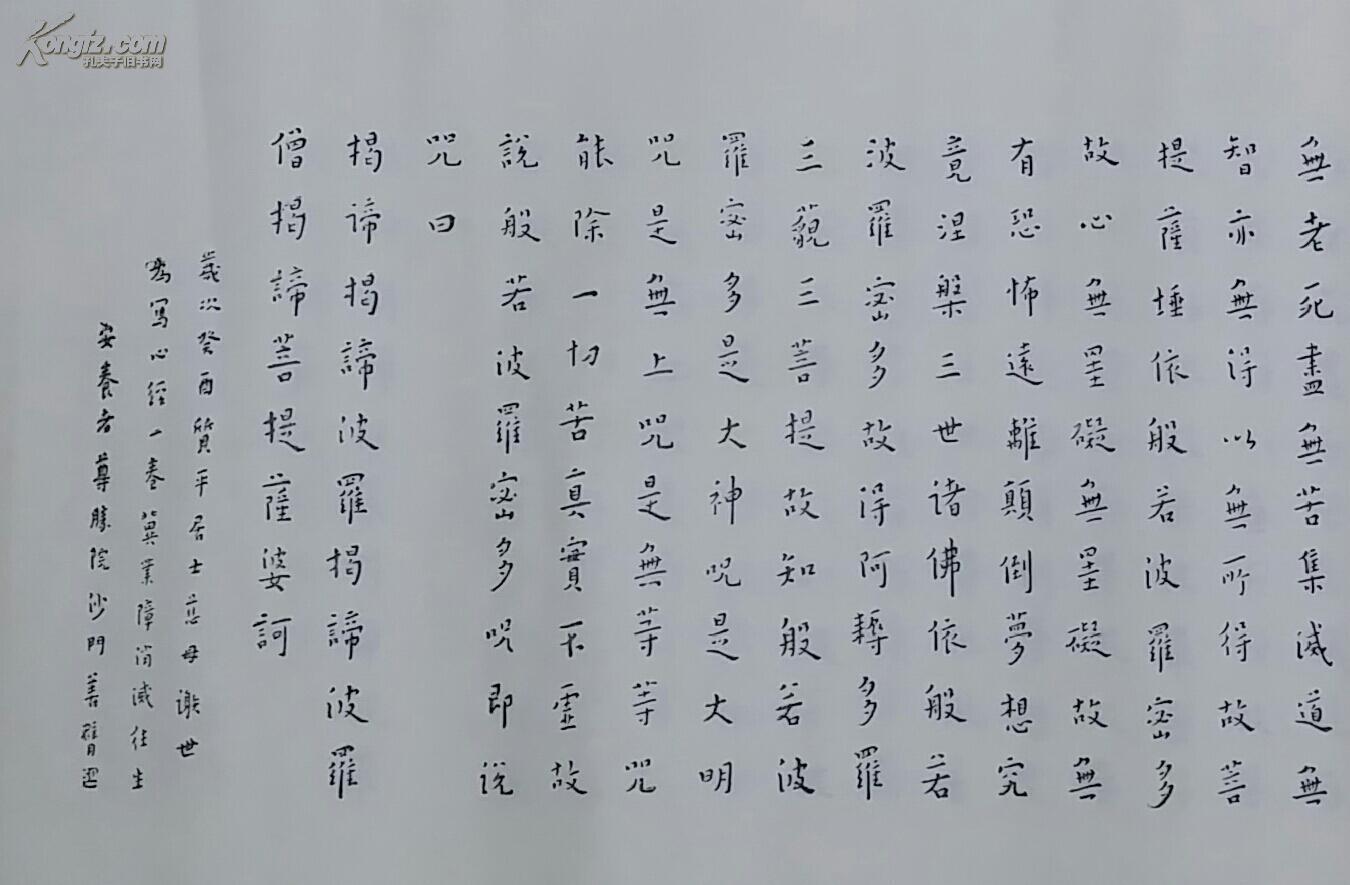 無老死盡無苦集滅道無
智亦無得以無所得故菩
提薩埵依般若波羅蜜多
故心無罣礙無罣礙故無
有恐怖遠離顛倒夢想究
竟涅槃三世諸佛依般若
波羅蜜多故得阿耨多羅
三藐三菩提故知般若波
羅蜜多是大神咒是大明
咒是無上咒是無等等咒
能除一切苦真實不虛故
說般若波羅蜜多咒即說
咒曰
揭諦揭諦波羅揭諦波羅
僧揭諦菩提薩婆訶
歲次癸酉質平居士慈母謝世
為寫心經一卷冀業障消滅往生
安養者尊勝院沙門善
Kongfz.com
孔夫子旧书网